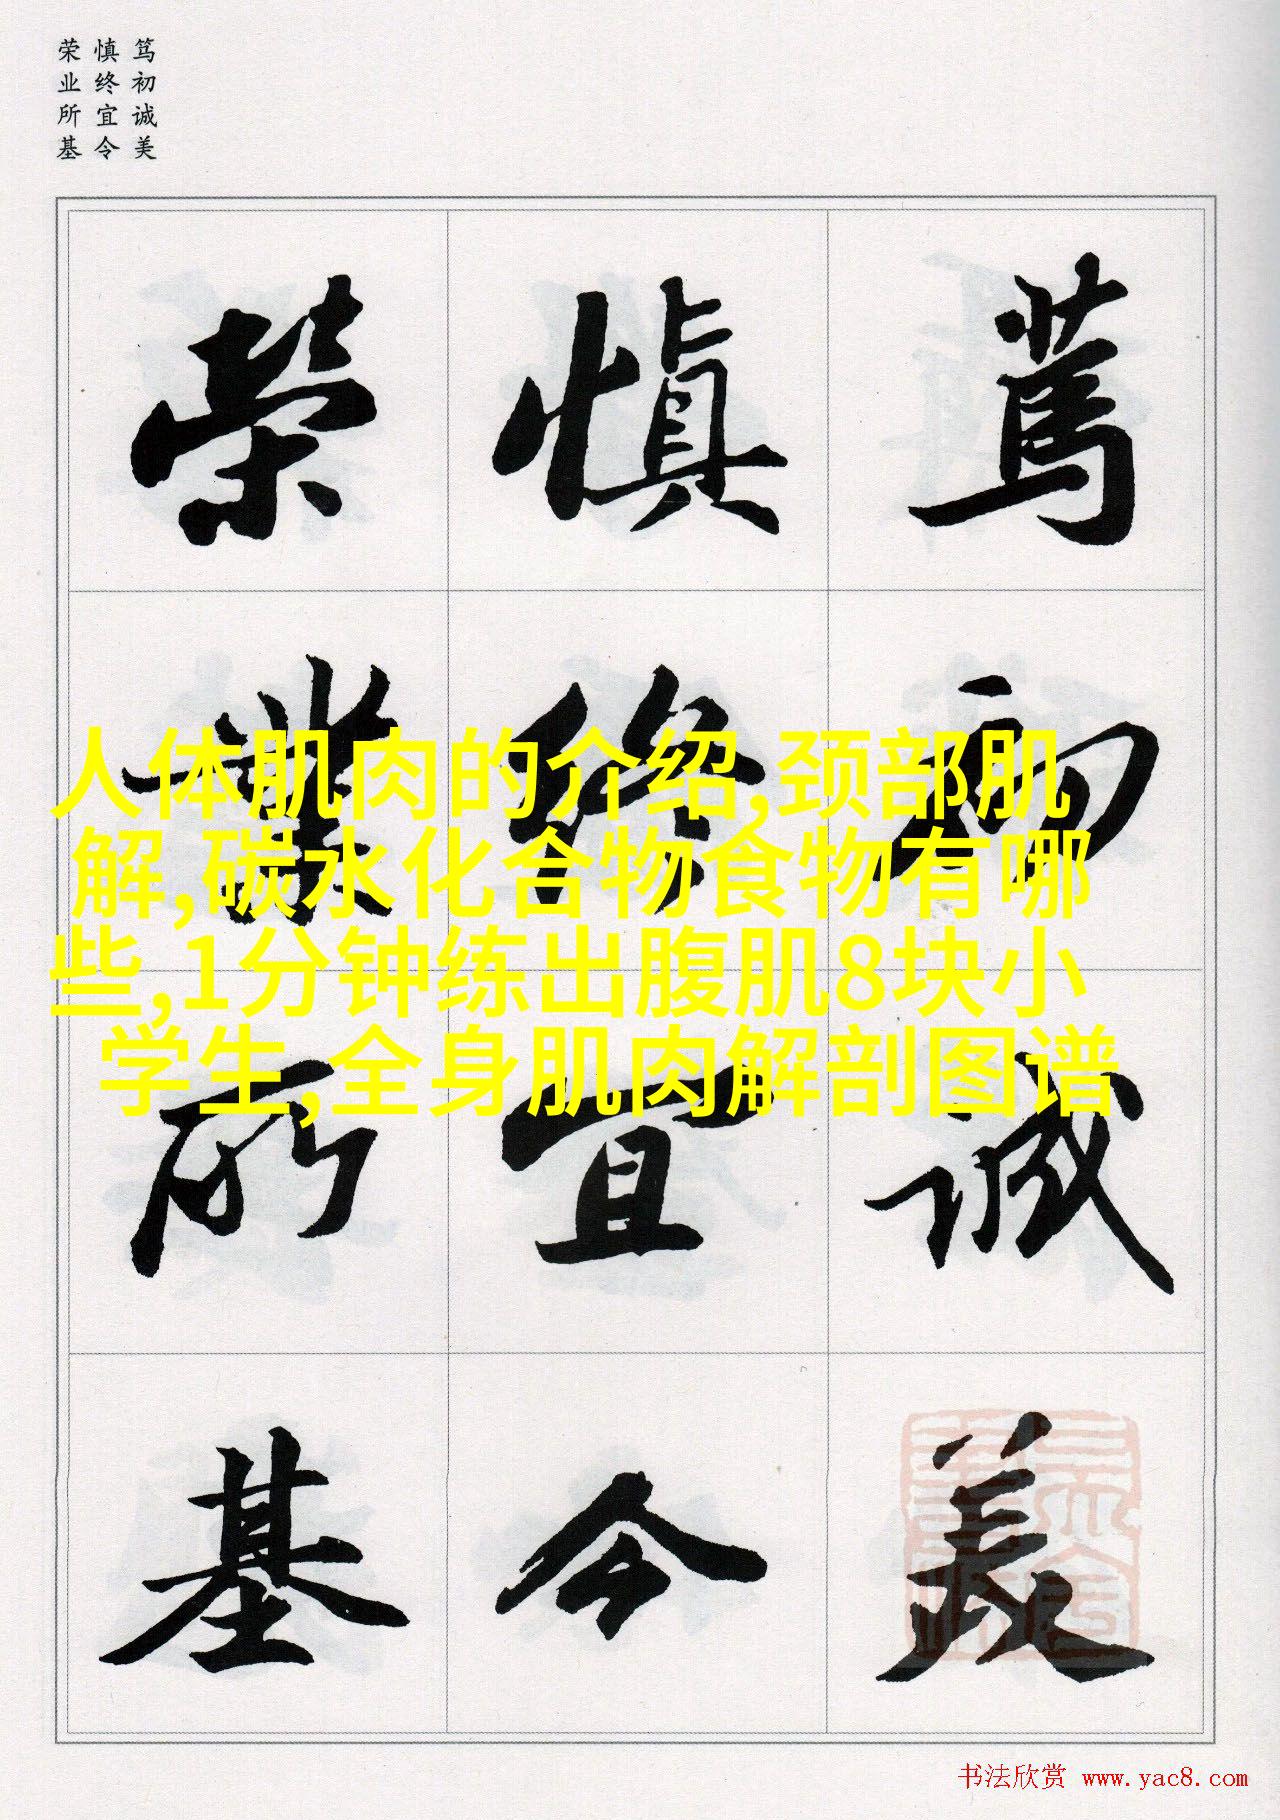 笃初诚美
慎终宜令
荣业所基
篤初誠美
慎終宜令
榮業所基
人体肌肉的介绍,颈部肌
解,碳水化合物食物有哪
些,1分钟练出腹肌8块小
学生,全身肌肉解剖图谱
书法欣赏 www.yac8.com